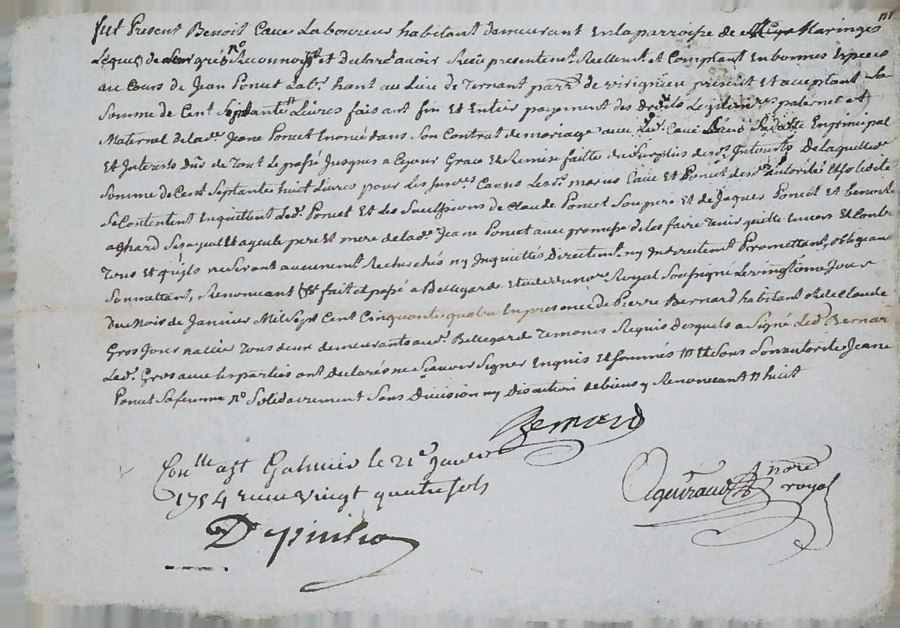 fut Present Benoit Caue Laboureur habitant demeurant En la parroisse de Maringes
Lequel de Son gré no Reconnoist et declaré avoir Receu presentemt Reellemt et Comptant En bonnes Especes
au Cours de Jean Poncet Labr. hant au Lieu de Ternant parr. de virignieu present Et acceptant La
Somme de Cent Septante Livres faisant fin Et Entier payement des Droits Legitimes paternel et
Maternel de lade Jeane Poncet Enoncé dans Son Contrat de mariage avec led. Caue En principal
Et Interets dus de Tout Le passé Jusques a Ce jour Grace Et Remise faitte du Surplus desd. Interests De laquelle
Somme de Cent Septante huit Livres pour Les Causes Lesd. maries Caue Et Poncet
Se Contentent Enquittent Led. Poncet Et Les de Claude Poncet Son pere Et de Jaques Poncet Et
pere Et mere de lade. Jeane Poncet avec promesse de les faire Tenir quitte Envers Et Contre
Tous Et quils ne Seront aucunemt. Recherchés ny Inquietés Directemt. ny Indirectement Promettant, obligeant
Soumettant, Renoncant fait et passé a Bellegarde Etude du no. Royal Soussigné Le vingtieme Jour
du Mois de Janvier Mil Sept Cent Cinquante quatre En presence de Pierre Bernard habitant Et de Claude
Gros Journallier Tous deux demeurants aud. Bellegarde Temoins Requis desquels a Signé Led. Bernar
Led. Gros avec les parties ont declaré ne Scavoir Signer Enquis Et Sommés Sous Son autorité Jeane
Poncet Sa femme no Solidairement Sans Division ny Discution de biens y Renoncant huit
Bernard
Conlle a St Galmier le 21e janvier
1754 Receu vingt quatre sols
nore
royal